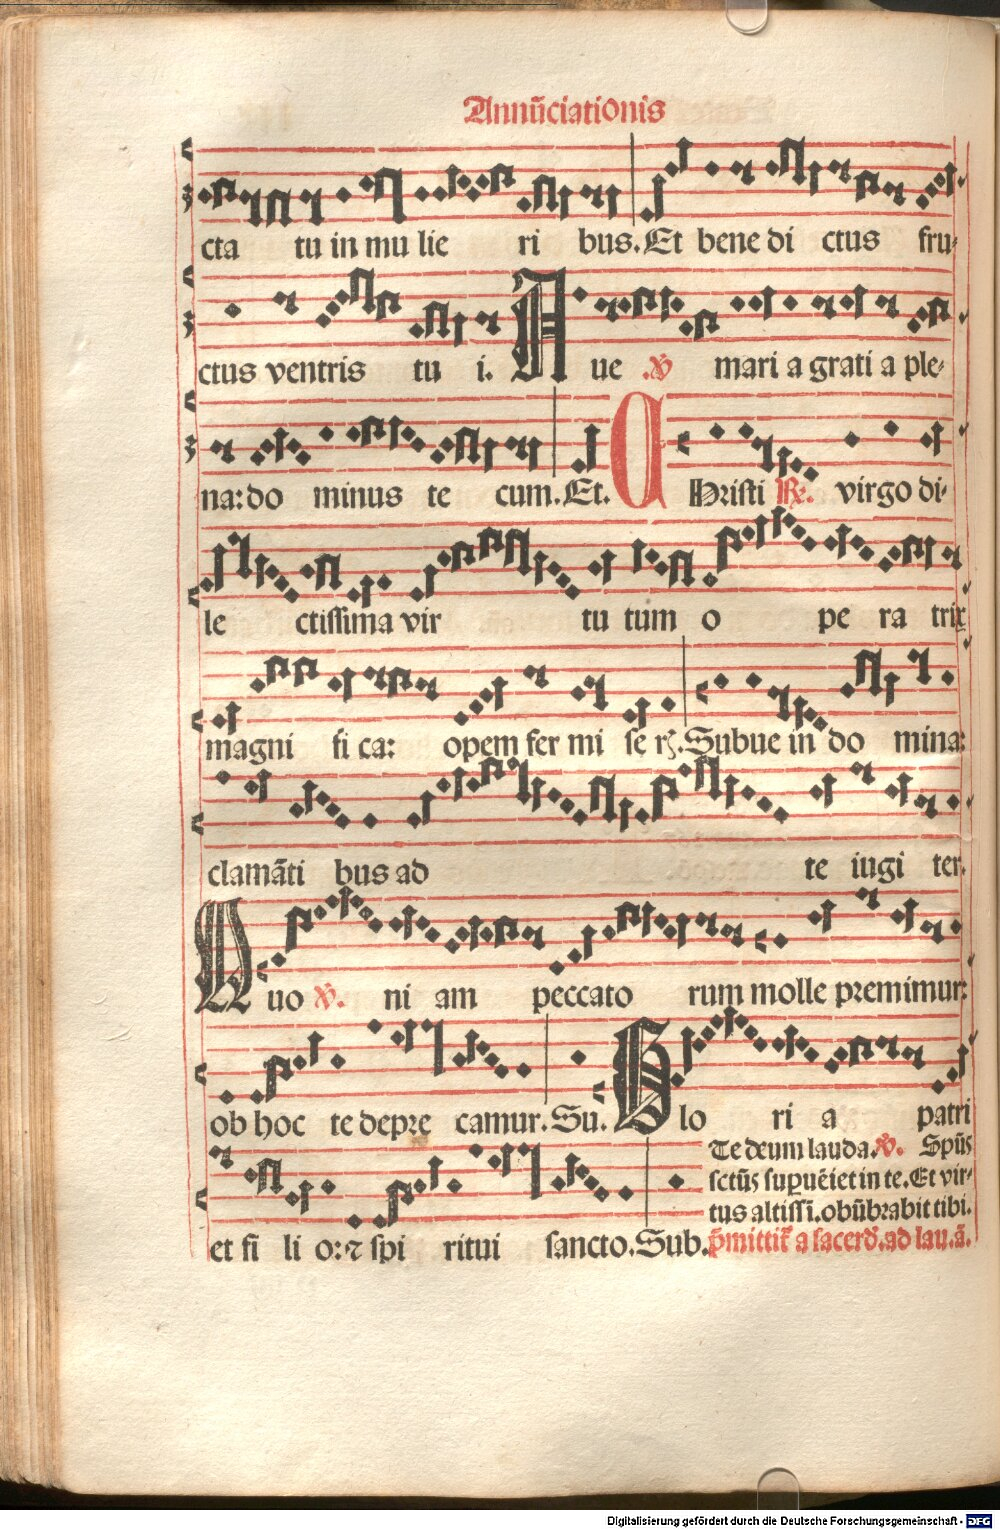 Annũciationis
cta tu in mu lie ri bus. Et bene di ctus fru-
ctus ventris tu i. A ue ℣ mari a grati a ple-
na: do minus te cum. Et. C Hristi ℟. virgo di-
le ctissima vir tu tum o pe ra trix
magni fi ca: opem fer mi se rꝫ. Subue in do mina:
clamãti bus ad te iugi ter.
Q uo ℣. ni am peccato rum molle premimur:
ob hoc te depre camur. Su. G lo ri a patri
Te deum lauda. ℣. Spũs
sctũs supuẽiet in te. Et vir-
tus altissi. obũbrabit tibi.
et fi li o: ⁊ spi ritui sancto. Sub.
p̃mittit̃ a sacerd. ad lau. ã.
Digitalisierung gefördert durch die Deutsche Forschungsgemeinschaft - DFG